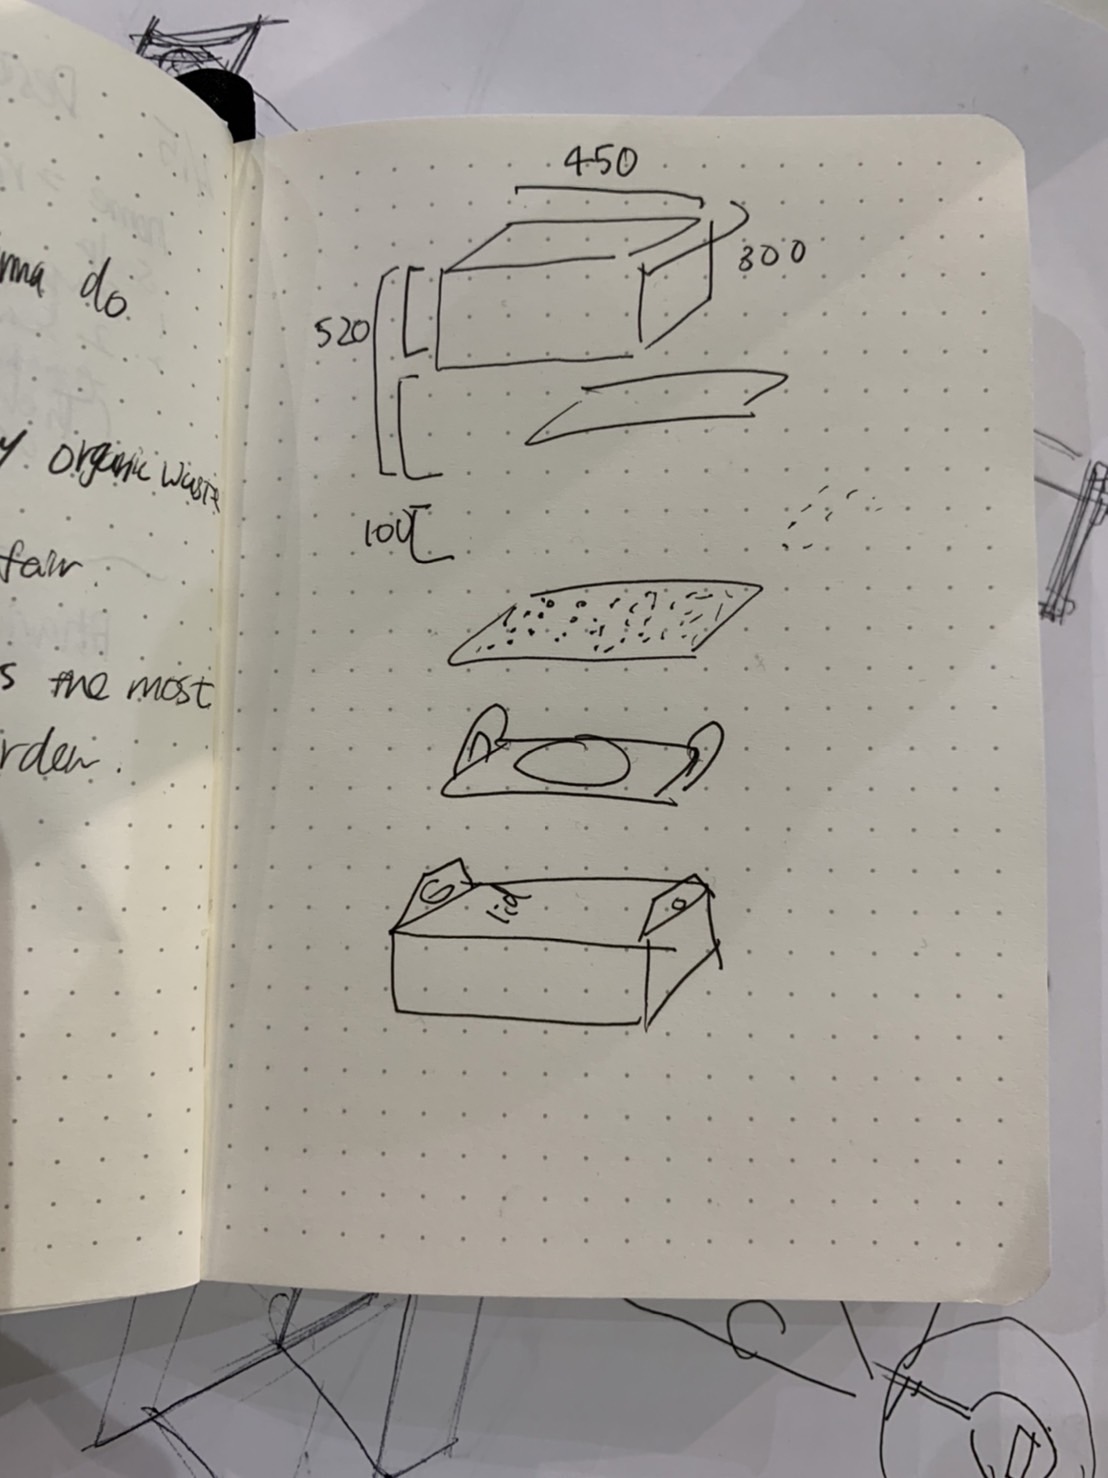 nna do
y organic waste
fair
s the most
rden.
450
300
520
100
lid